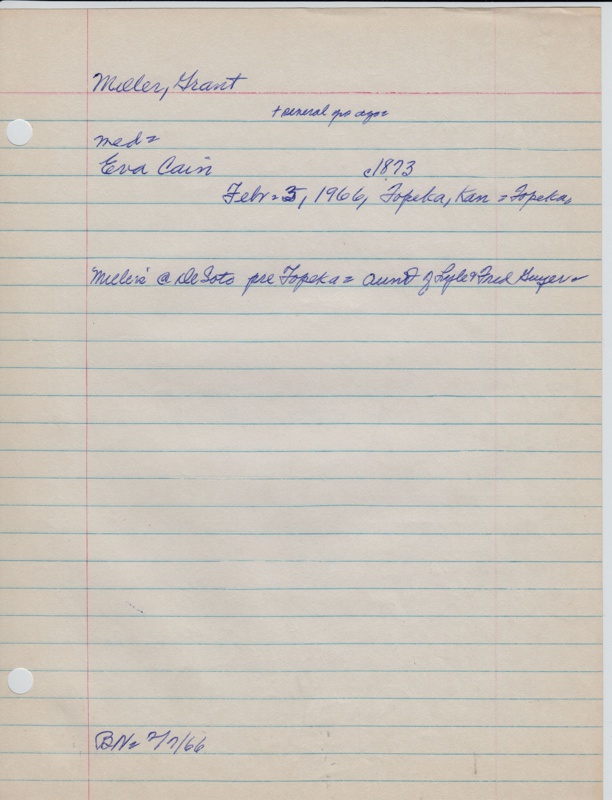 Miller, Grant
+ several yrs ago=
med=
Eva Cain c1873
Febr. 3, 1966, Topeka, Kan = Topeka=
Millers @ DeSoto pre Topeka = aunt of Lyle & Fred Guyer=
BN= 2/7/66